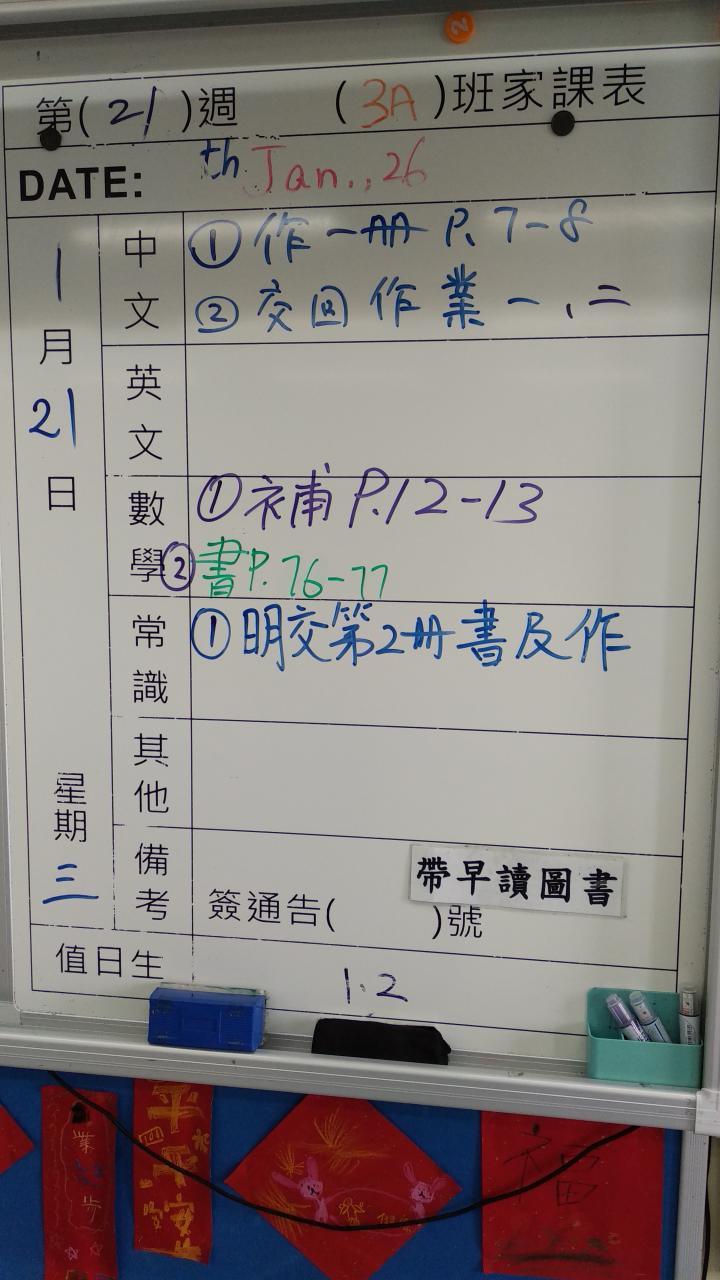 第(21)週 (3A)班家課表
DATE: th Jan.,,26
1月21日 星期三
中文
①作一冊 P.7-8
②交回作業一、二
英文
數學
①補 P.12-13
②書P.76-77
常識
①明交第2冊書及作
其他
備考
帶早讀圖書
簽通告( )號
值日生
1.2
業
步
平
安
福